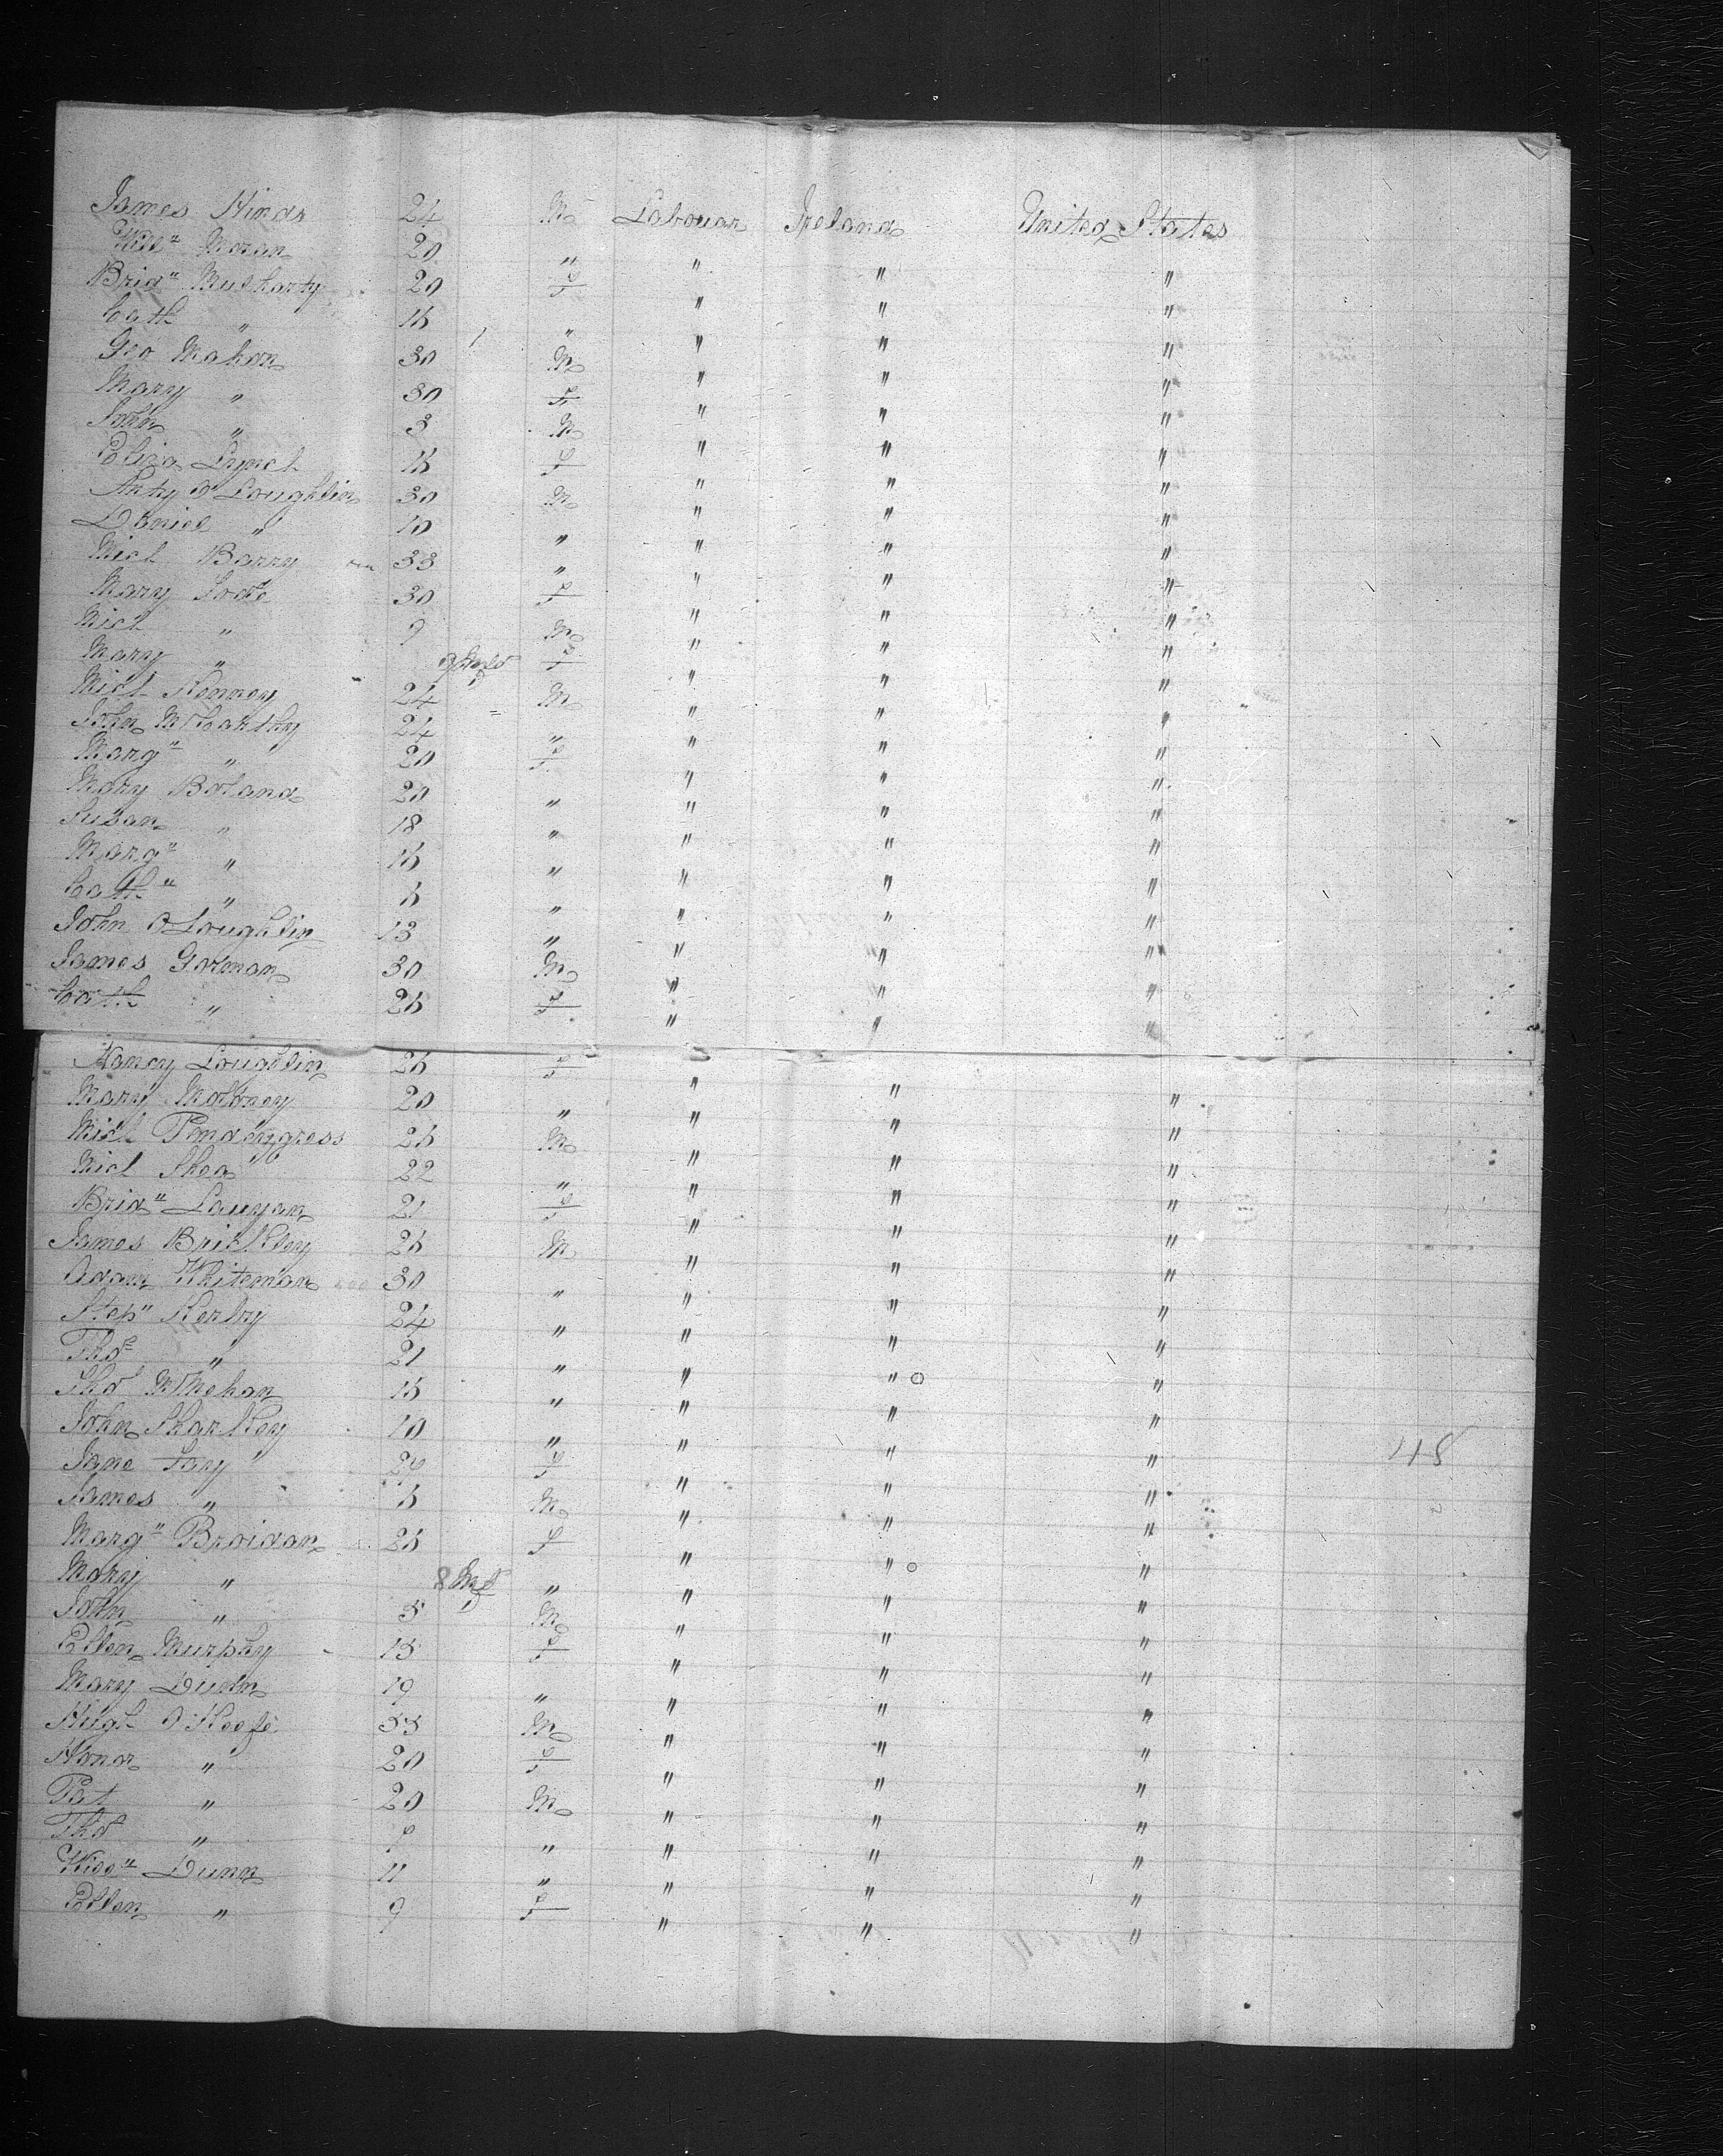 James Hinds 24 M Labourar Ireland United States
Will" Moran 20 " " " "
Brid" Musharty 20 F " " "
Cath " 15 " " " "
Geo Mahon 30 M " " "
Mary " 30 F " " "
John " 3 M " " "
Eliza Lynch 15 F " " "
Anty O'Loughlin 30 M " " "
Daniel " 10 " " " "
Micl Barry 33 " " " "
Mary 30 F " " "
Micl " 9 M " " "
Mary " F " " "
Micl Kenney 24 M " " "
John McCarthy 24 " " " "
Marg" " 20 F " " "
Mary Boland 20 " " " "
Susan " 18 " " " "
Marg" " 15 " " " "
Cath" " 5 " " " "
John O Loughlin 13 " " " "
James Gorman 30 M " " "
Cath " 25 F " " "
Nancy Loughlin 25 F " " "
Mary Moloney 20 " " " "
Micl Pendergress 25 M " " "
Micl Shea 22 " " " "
Brid" 21 F " " "
James Brickley 25 M " " "
Adam Whiteman 30 " " " "
Step" Kerby 24 " " " "
Thos " 21 " " " "
Tho McMehan 15 " " " "
John Sharkey 10 " " " "
Jane Fary F " " " 48
James " 5 M " " "
Marg" Broidan 25 F " " "
Mary " 8 Mos " " " "
John " 5 M " " "
Ellen Murphy 15 F " " "
Mary 19 " " " "
Hugh O'Keefe 55 M " " "
Honor " 20 F " " "
Pat " 20 M " " "
Tho " 7 " " " "
Will" Dunn 11 " " " "
Ellen " 9 F " " "